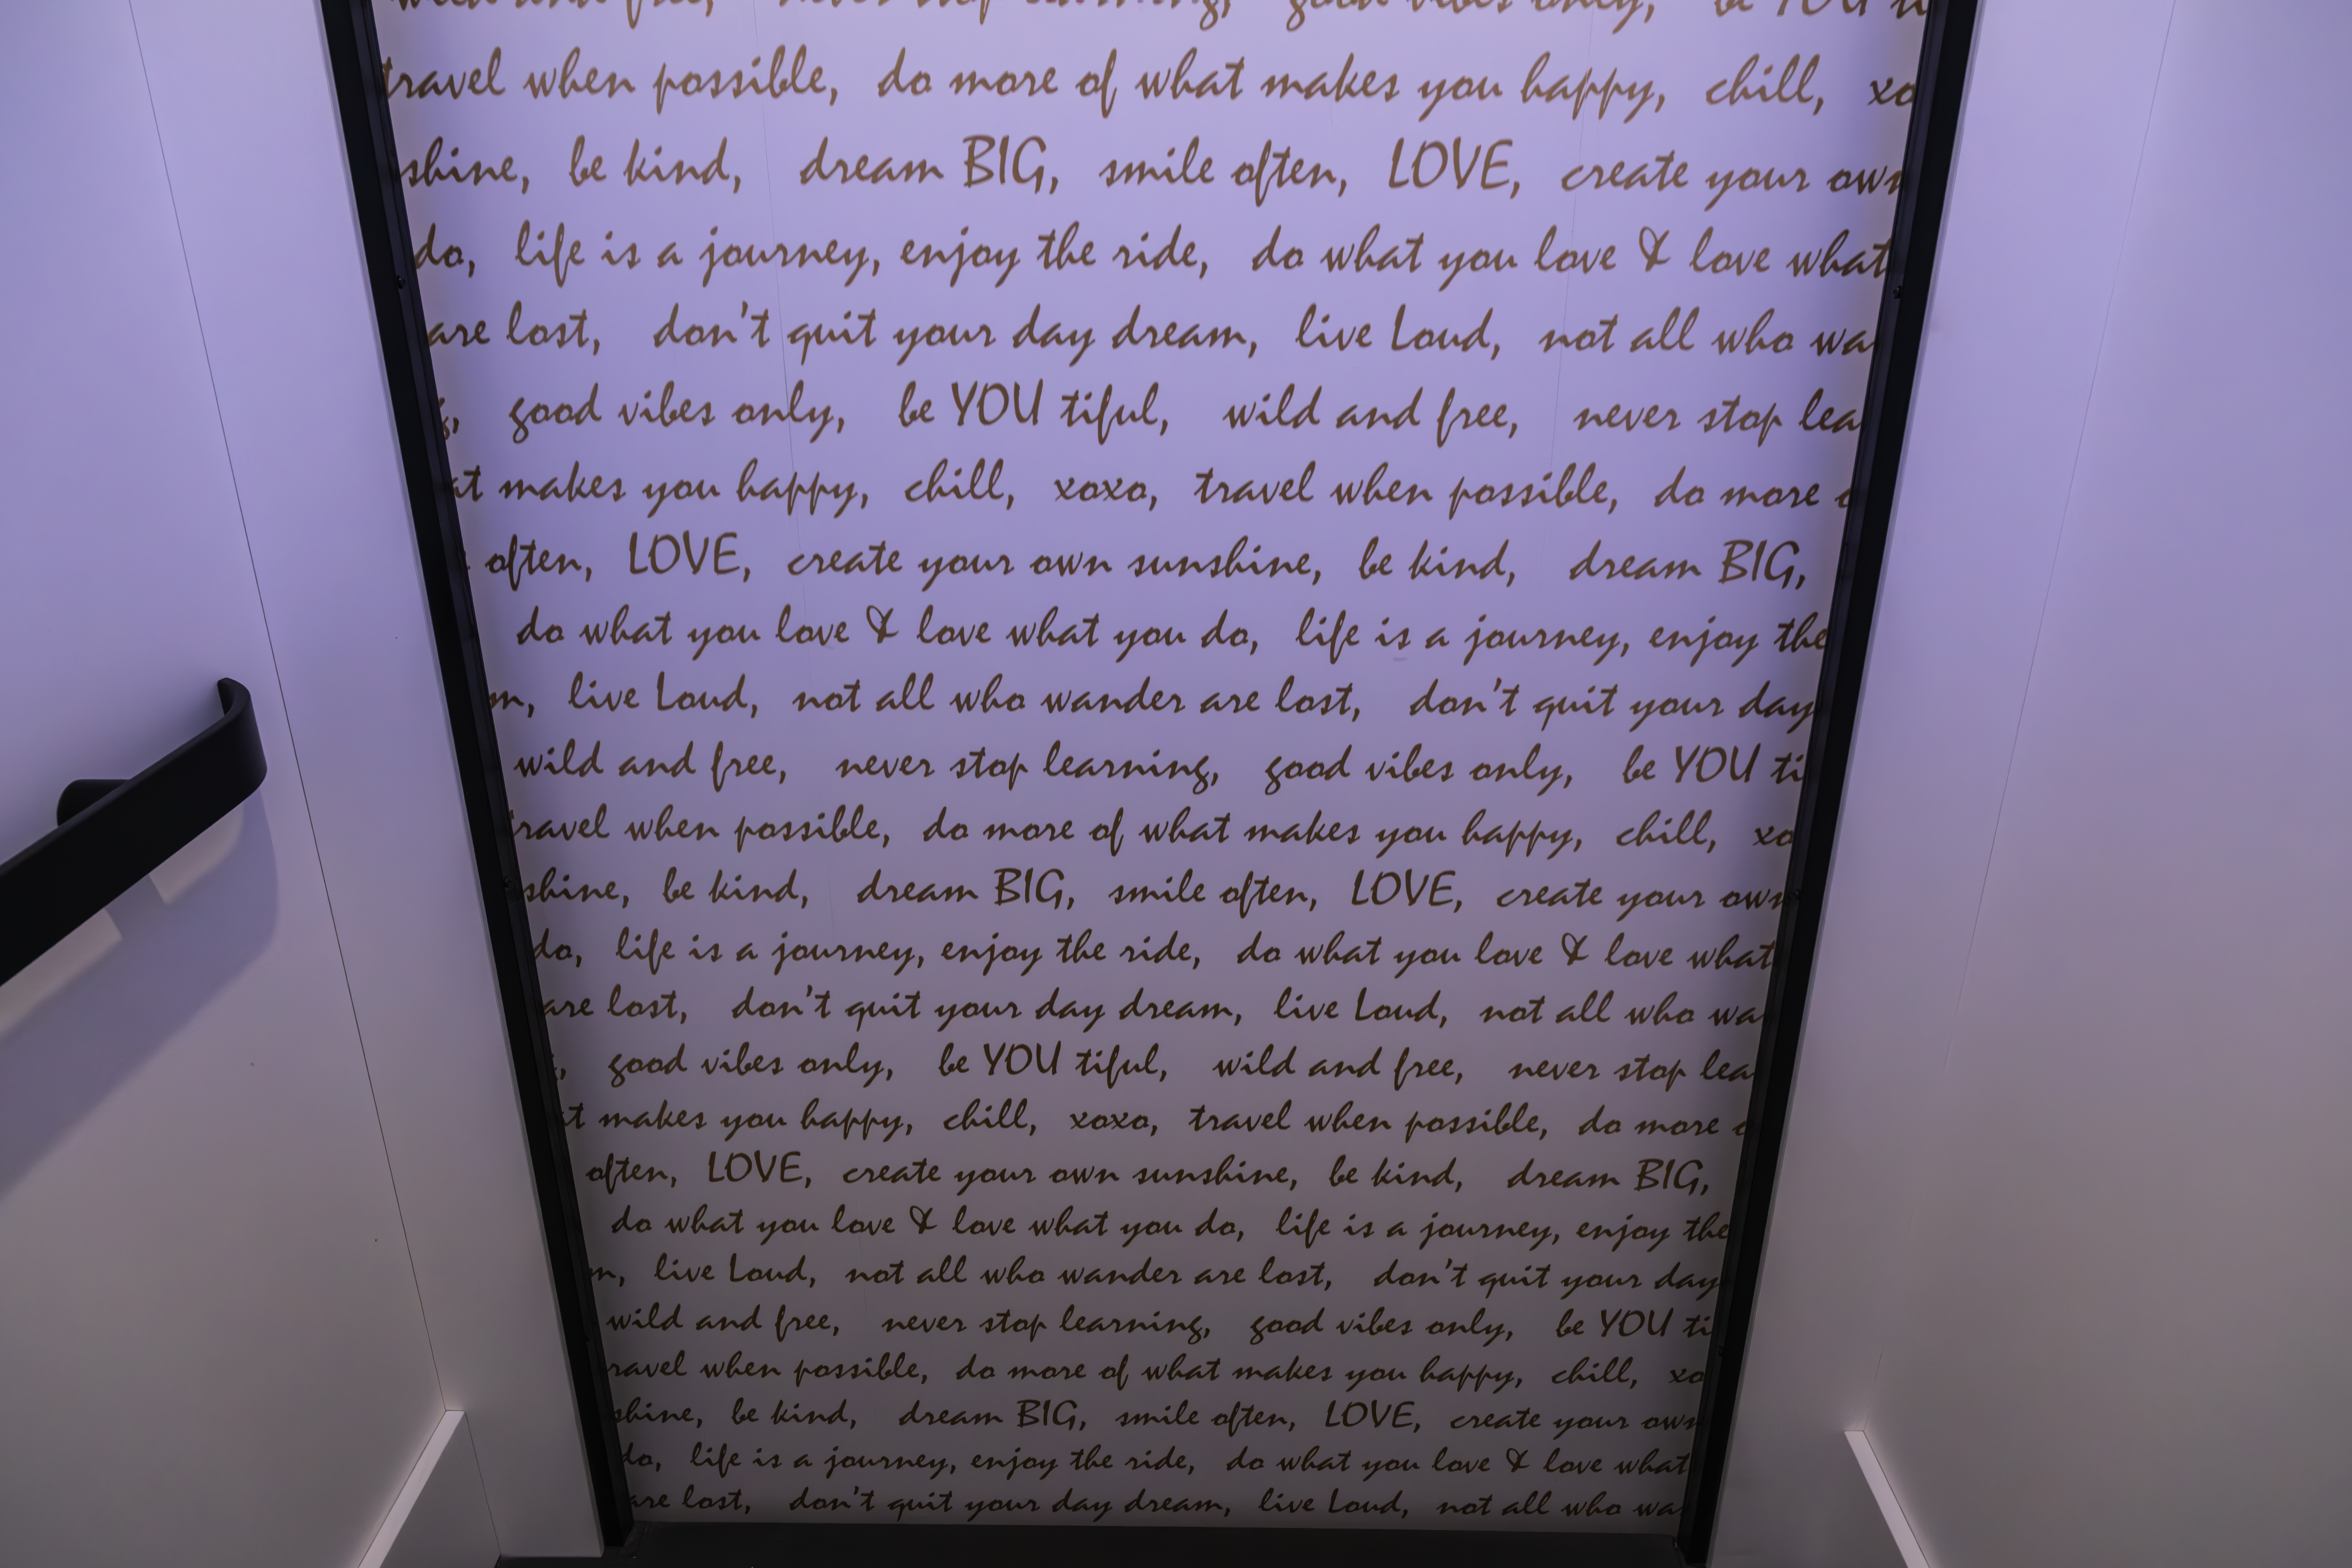 wild and free, never stop learning, good vibes only, be YOU ti
travel when possible, do more of what makes you happy, chill, xo
shine, be kind, dream BIG, smile often, LOVE, create your own
do, life is a journey, enjoy the ride, do what you love & love what
are lost, don't quit your day dream, live Loud, not all who wa
g, good vibes only, be YOU tiful, wild and free, never stop lea
at makes you happy, chill, xoxo, travel when possible, do more o
often, LOVE, create your own sunshine, be kind, dream BIG,
do what you love & love what you do, life is a journey, enjoy the
m, live Loud, not all who wander are lost, don't quit your day
wild and free, never stop learning, good vibes only, be YOU ti
travel when possible, do more of what makes you happy, chill, xo
shine, be kind, dream BIG, smile often, LOVE, create your own
do, life is a journey, enjoy the ride, do what you love & love what
are lost, don't quit your day dream, live Loud, not all who wa
, good vibes only, be YOU tiful, wild and free, never stop lea
t makes you happy, chill, xoxo, travel when possible, do more o
often, LOVE, create your own sunshine, be kind, dream BIG,
do what you love & love what you do, life is a journey, enjoy the
m, live Loud, not all who wander are lost, don't quit your day
wild and free, never stop learning, good vibes only, be YOU ti
ravel when possible, do more of what makes you happy, chill, xo
shine, be kind, dream BIG, smile often, LOVE, create your own
do, life is a journey, enjoy the ride, do what you love & love what
are lost, don't quit your day dream, live Loud, not all who wa